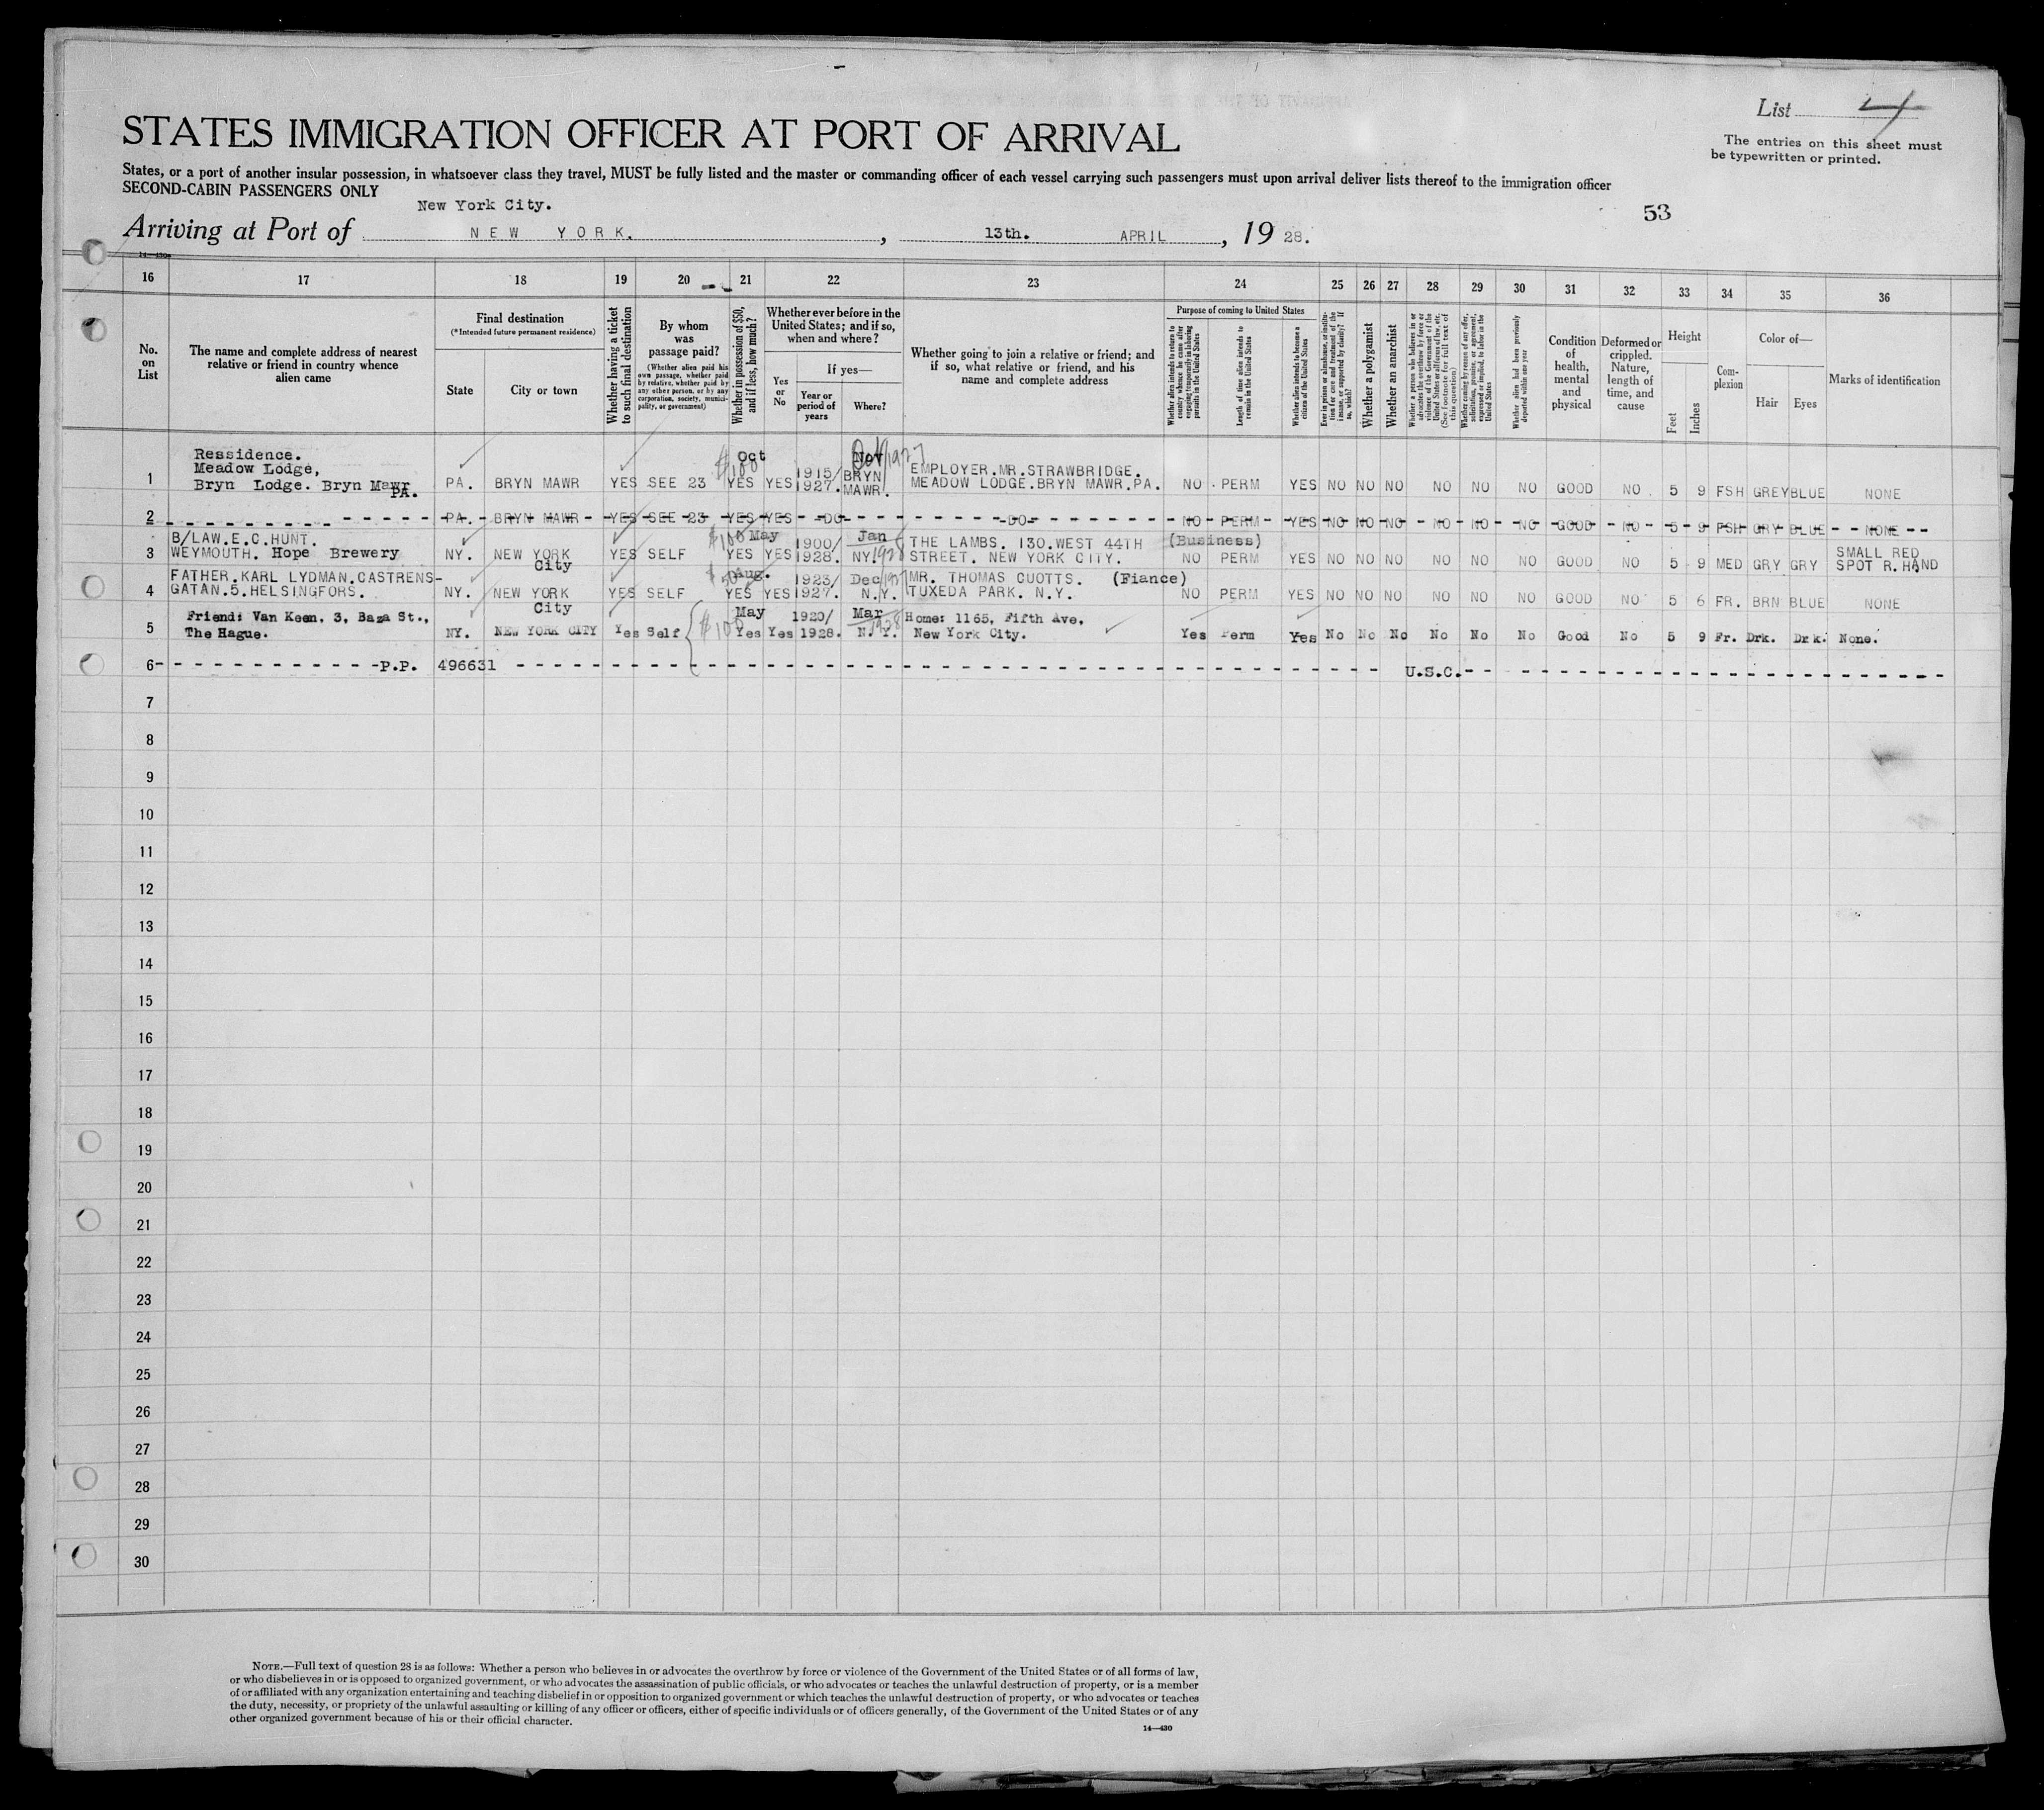 List 4
STATES IMMIGRATION OFFICER AT PORT OF ARRIVAL
The entries on this sheet must
be typewritten or printed.
States, or a port of another insular possession, in whatsoever class they travel, MUST be fully listed and the master or commanding officer of each vessel carrying such passengers must upon arrival deliver lists thereof to the immigration officer
SECOND-CABIN PASSENGERS ONLY
New York City.
53
Arriving at Port of NEW YORK. , 13th. APRIL , 19 28.
14—430
16 17 18 19 20 21 22 23 24 25 26 27 28 29 30 31 32 33 34 35 36
No. on List
The name and complete address of nearest relative or friend in country whence alien came
Final destination
(*Intended future permanent residence)
State
City or town
Whether having a ticket to such final destination
By whom was passage paid?
(Whether alien paid his own passage, whether paid by relative, whether paid by any other person, or by any corporation, society, municipality, or government)
Whether in possession of $50, and if less, how much?
Whether ever before in the United States; and if so, when and where?
Yes or No
If yes—
Year or period of years
Where?
Whether going to join a relative or friend; and if so, what relative or friend, and his name and complete address
Purpose of coming to United States
Whether alien intends to return to country whence he came after engaging temporarily in laboring pursuits in the United States
Length of time alien intends to remain in the United States
Whether alien intends to become a citizen of the United States
Ever in prison or almshouse, or institution for care and treatment of the insane, or supported by charity? If so, which?
Whether a polygamist
Whether an anarchist
Whether a person who believes in or advocates the overthrow by force or violence of the Government of the United States or all forms of law, etc. (See footnote for full text of this question)
Whether coming by reason of any offer, solicitation, promise, or agreement, expressed or implied, to labor in the United States
Whether alien had been previously deported within one year
Condition of health, mental and physical
Deformed or crippled. Nature, length of time, and cause
Height
Feet
Inches
Complexion
Color of—
Hair
Eyes
Marks of identification
Ressidence. Oct Oct 1927
Meadow Lodge, $100 1915/ BRYN EMPLOYER.MR.STRAWBRIDGE.
1 Bryn Lodge. Bryn Mawr PA. PA. BRYN MAWR YES SEE 23 YES YES 1927. MAWR. MEADOW LODGE.BRYN MAWR.PA. NO PERM YES NO NO NO NO NO NO GOOD NO 5 9 FSH GREY BLUE NONE
2 PA. BRYN MAWR YES SEE 23 YES YES -DO- -DO- NO PERM YES NO NO NO NO NO NO GOOD NO 5 9 FSH GRY BLUE NONE
B/LAW.E.C.HUNT. $100 May 1900/ Jan 1928 THE LAMBS. 130.WEST 44TH (Business) SMALL RED
3 WEYMOUTH. Hope Brewery NY. NEW YORK City YES SELF YES YES 1928. NY. STREET. NEW YORK CITY. NO PERM YES NO NO NO NO NO NO GOOD NO 5 9 MED GRY GRY SPOT R.HAND
FATHER.KARL LYDMAN.CASTRENS- $50 Aug. 1923/ Dec 1927 MR. THOMAS CUOTTS. (Fiance)
4 GATAN.5.HELSINGFORS. NY. NEW YORK City YES SELF YES YES 1927. N.Y. TUXEDA PARK. N.Y. NO PERM YES NO NO NO NO NO NO GOOD NO 5 6 FR. BRN BLUE NONE
Friend: Van Keen, 3, Baza St., $100 May 1920/ Mar 1928 Home: 1165, Fifth Ave,
5 The Hague. NY. NEW YORK CITY Yes Self Yes Yes 1928. N.Y. New York City. Yes Perm Yes No No No No No No Good No 5 9 Fr. Drk. Drk. None.
6 P.P. 496631 U.S.C.
7
8
9
10
11
12
13
14
15
16
17
18
19
20
21
22
23
24
25
26
27
28
29
30
NOTE.—Full text of question 28 is as follows: Whether a person who believes in or advocates the overthrow by force or violence of the Government of the United States or of all forms of law,
or who disbelieves in or is opposed to organized government, or who advocates the assassination of public officials, or who advocates or teaches the unlawful destruction of property, or is a member
of or affiliated with any organization entertaining and teaching disbelief in or opposition to organized government or which teaches the unlawful destruction of property, or who advocates or teaches
the duty, necessity, or propriety of the unlawful assaulting or killing of any officer or officers, either of specific individuals or of officers generally, of the Government of the United States or of any
other organized government because of his or their official character.
14—430